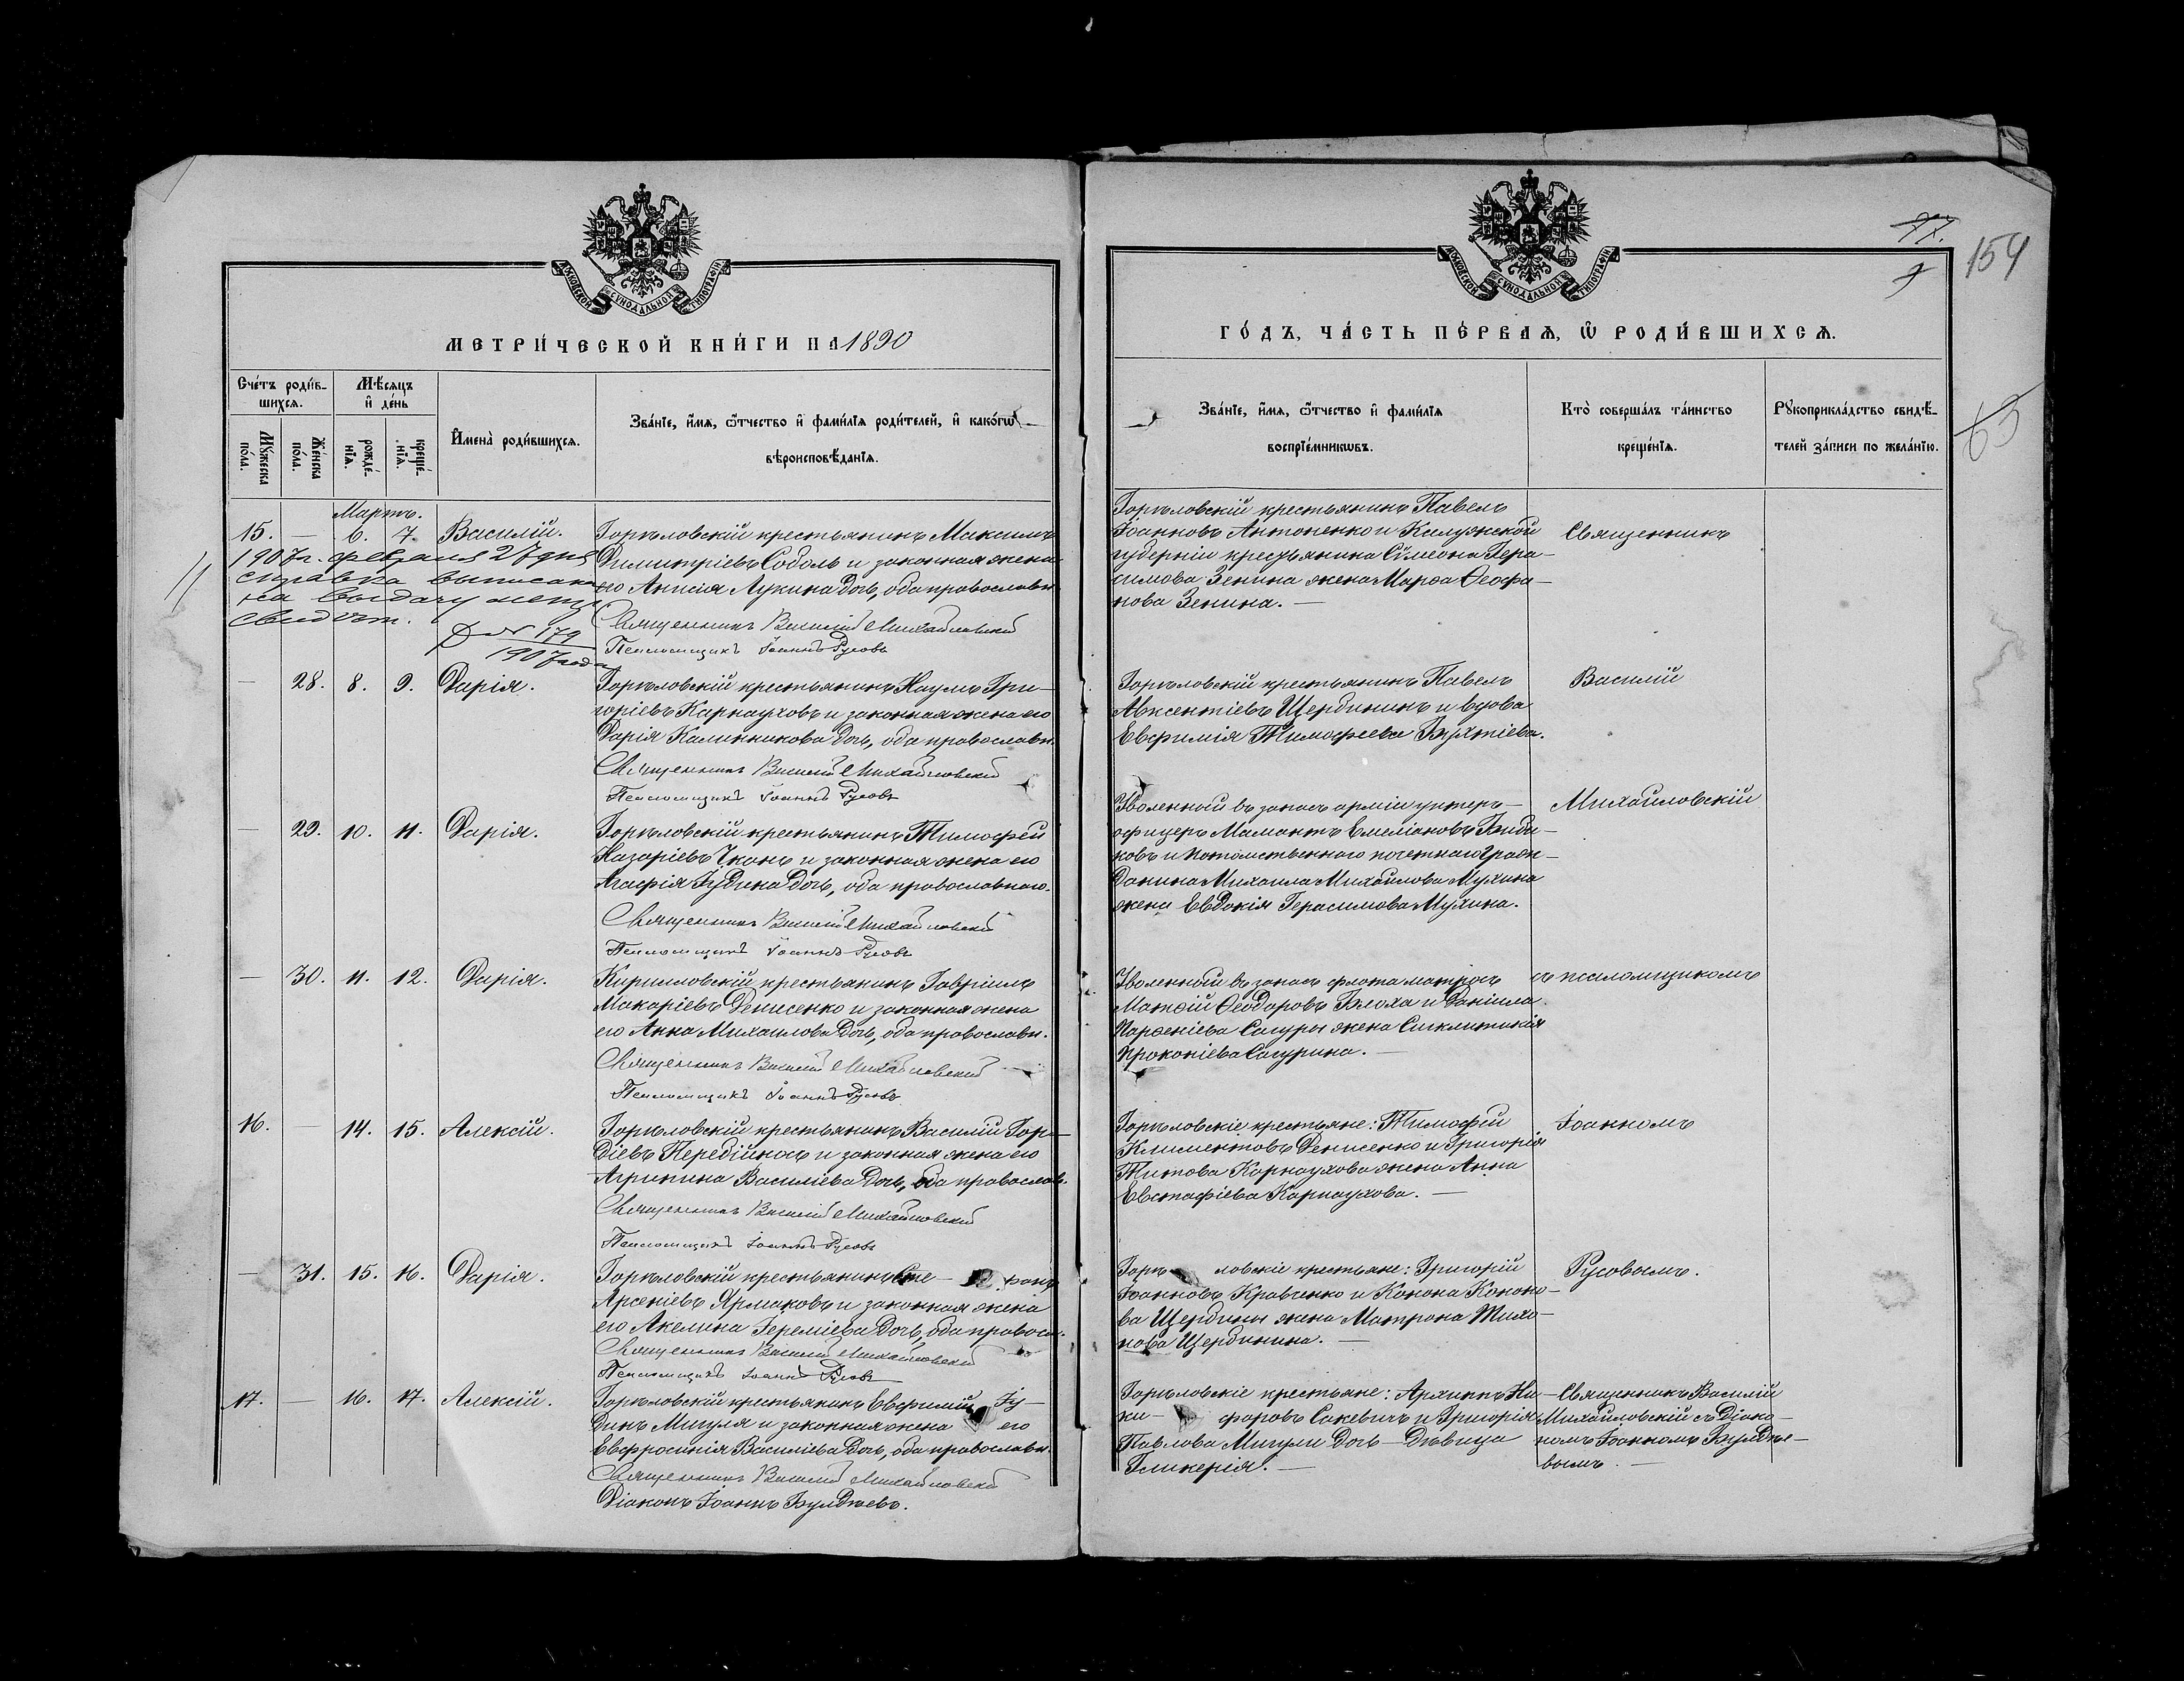 МОСКОВСКОЙ СѴНОДАЛЬНОЙ ТИПОГРАФІИ
МЕТРИ́ЧЕСКОЙ КНИ́ГИ НА 1890
Сче́тъ роди́в-
шихсѧ.
Мѣ́сяцъ
и҆ де́нь
Мꙋ́жеска
по́ла.
Же́нска
по́ла.
рожде́-
нїѧ.
креще́-
нїѧ.
И҆мена̀ роди́вшихсѧ.
Зва́нїе, и҆́мѧ, ѻ҆́тчество и҆ фами́лїѧ роди́телей, и҆ како́гѡ
вѣроисповѣ́данїѧ.
Мартъ.
15. — 6. 7. Василій.
1907 г. февраля 27 дня
справка выписана
на выдачу метр
свидѣт.
№ 179
1907 года
Горѣловскій крестьянинъ Максимъ
Димитріевъ Соболь и законная жена
его Анисія Лукина дочь, оба православн.
Священникъ Василій Михайловскій
Псаломщикъ Іоаннъ Русовъ
— 28. 8. 9. Дарія.
Горѣловскій крестьянинъ Наумъ Гри-
горіевъ Карнауховъ и законная жена его
Дарія Калинникова дочь, оба православн.
Священникъ Василій Михайловскій
Псаломщикъ Іоаннъ Русовъ
— 29. 10. 11. Дарія.
Горѣловскій крестьянинъ Тимофей
Назаріевъ Чканъ и законная жена его
Агафія Іудина дочь, оба православнаго.
Священникъ Василій Михайловскій
Псаломщикъ Іоаннъ Русовъ
— 30. 11. 12. Дарія.
Кирилловскій крестьянинъ Гавріилъ
Макаріевъ Денисенко и законная жена
его Анна Михаилова дочь, оба православн.
Священникъ Василій Михайловскій
Псаломщикъ Іоаннъ Русовъ
16. 14. 15. Алексій.
Горѣловскій крестьянинъ Василій Горд-
діевъ Передійносъ и законная жена его
Агрипина Василіева дочь, оба православ.
Священникъ Василій Михайловскій
Псаломщикъ Іоаннъ Русовъ
— 31. 15. 16. Дарія.
Горѣловскій крестьянинъ Сте- фанъ
Арсеніевъ Ярмаковъ и законная жена
его Акелина Іереміева дочь, оба правосл.
Священникъ Василій Михайловскій
Псаломщикъ Іоаннъ Русовъ
17. — 16. 17. Алексій.
Горѣловскій крестьянинъ Евфимій Іу-
динъ Мигуля и законная жена его
Евфросинія Василіева дочь, оба православн.
Священникъ Василій Михайловскій
Діаконъ Іоаннъ Булдѣевъ.
154
63
МОСКОВСКОЙ СѴНОДАЛЬНОЙ ТИПОГРАФІИ
ГО́ДЪ, ЧА́СТЬ ПЕ́РВАѦ, Ѡ҆ РОДИ́ВШИХСѦ.
Зва́нїе, и҆́мѧ, ѻ҆́тчество и҆ фами́лїѧ
воспрїе́мникѡвъ.
Кто̀ соверша́лъ та́инство
креще́нїѧ.
Рꙋкоприкла́дство свидѣ́-
телей за́писи по жела́нїю.
Горѣловскій крестьянинъ Павелъ
Іоанновъ Антоненко и Калужской
губерніи крестьянина Сѵмеона Гера-
симова Зенина жена Марѳа Ѳеофа-
нова Зенина. —
Священникъ
Горѣловскій крестьянинъ Павелъ
Авксентіевъ Щербининъ и вдова
Евфимія Тимофеева Бухтіева.
Василій
Уволенный въ запасъ арміи унтеръ-
офицеръ Мамантъ Емеліановъ
ковъ и потомственнаго почетнаго граж-
данина Михаила Михайлова Мухина
жена Евдокія Герасимова Мухина.
Михайловскій
Уволенный въ запасъ флота матросъ
Матѳій Ѳеодоровъ Блоха и Даніила
Парѳеніева Сагуры жена Сигклитикія
Прокопіева Сагурина. —
съ псаломщикомъ
Горѣловскіе крестьяне: Тимофій
Климентовъ Денисенко и Григорія
Титова Карнаухова жена Анна
Евстафіева Карнаухова. —
Іоанномъ
Горѣ- ловскіе крестьяне: Григорій
Іоанновъ Кравченко и Конона Кононо-
ва Щербины жена Матрона Тихо-
нова Щербинина. —
Русовымъ.
Горѣловскіе крестьяне: Архиппъ Ни-
ки- форовъ Сакевичъ и Григорія
Павлова Мигули дочь — дѣвица
Гликерія. —
Священникъ Василій
Михайловскій съ Діако-
номъ Іоанномъ Булдѣе-
вымъ. —